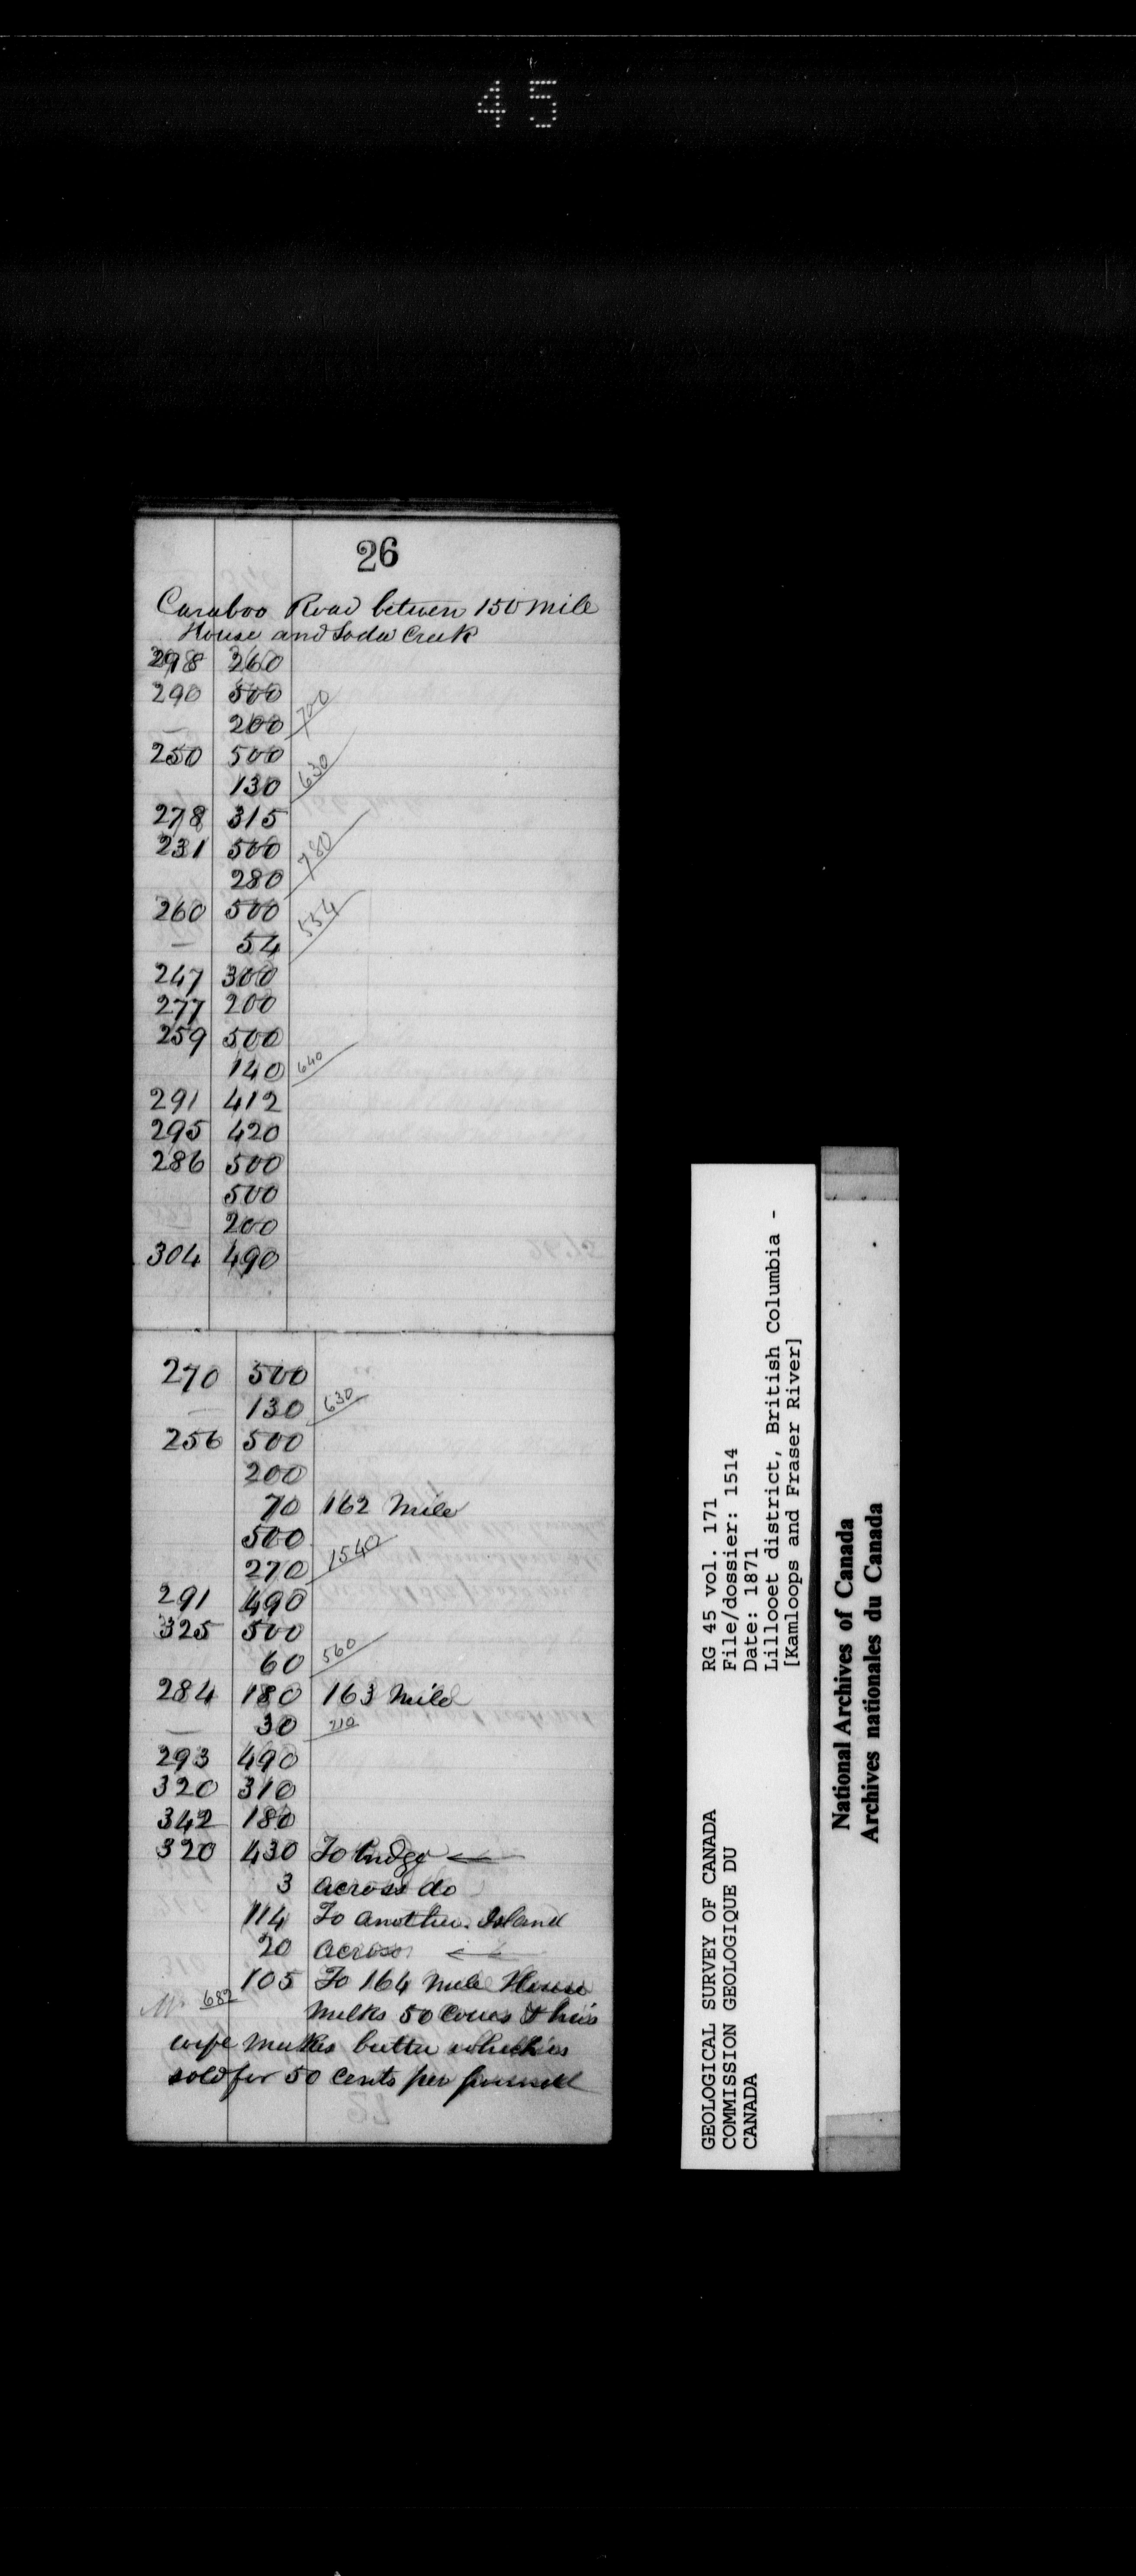 45
26
Caraboo Road between 150 mile
House and Soda Creek
298 260
290 500
— 200 700
250 500
130 630
278 315
231 500
280 780
260 500
— 54 554
247 300
277 200
259 500
140 640
291 412
295 420
286 500
500
200
304 490
270 500
— 130 630
256 500
200
70 162 Mile
500
270 1540
291 490
325 500
60 560
284 180 163 Mile
— 30 210
293 490
320 310
342 180
320 430 To bridge
3 across do
114 To another Island
20 across
105 To 164 Mile House
682 Milks 50 Cows & his
wife makes butter which is
sold for 50 cents per pound
GEOLOGICAL SURVEY OF CANADA
COMMISSION GEOLOGIQUE DU
CANADA
RG 45 vol. 171
File/dossier: 1514
Date: 1871
Lillooet district, British Columbia -
[Kamloops and Fraser River]
National Archives of Canada
Archives nationales du Canada